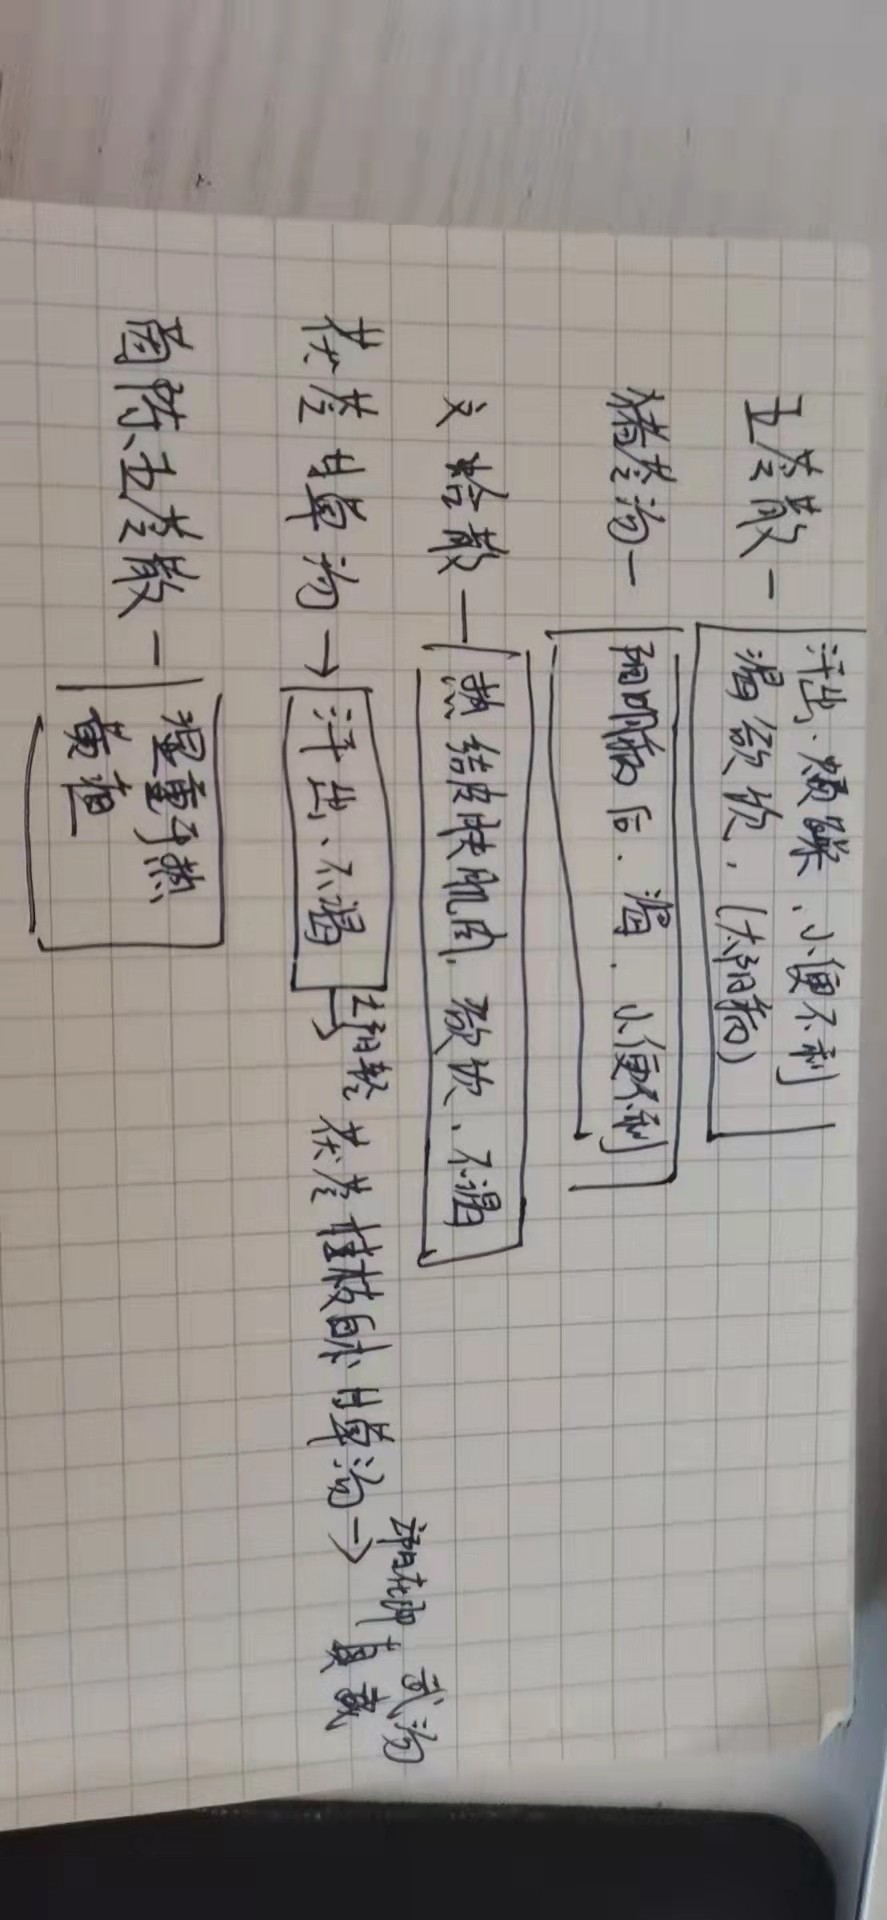 五苓散—
汗出、烦躁、小便不利
渴欲饮、(太阳病)
猪苓汤—
阳明病后、渴、小便不利
文蛤散—
热结皮肤肌肉、欲饮、不渴
茯苓甘草汤→
汗出、不渴
→
茯苓桂枝白术甘草汤→
真武汤
茵陈五苓散—
湿重于热
黄疸